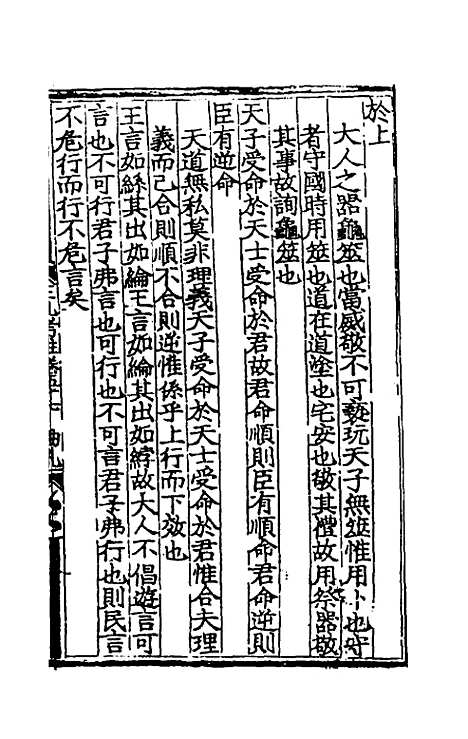 於上
大人之器龜筮也當威敬不可褻玩天子無筮惟用卜也守
者守國時用筮也道在道塗也宅安也敬其禮故用祭器敬
其事故詢龜筮也
天子受命於天士受命於君故君命順則臣有順命君命逆則
臣有逆命
天道無私莫非理義天子受命於天士受命於君惟合夫理
義而已合則順不合則逆惟係乎上行而下效也
王言如絲其出如綸王言如綸其出如綍故大人不倡遊言可
言也不可行君子弗言也可行也不可言君子弗行也則民言
不危行而行不危言矣